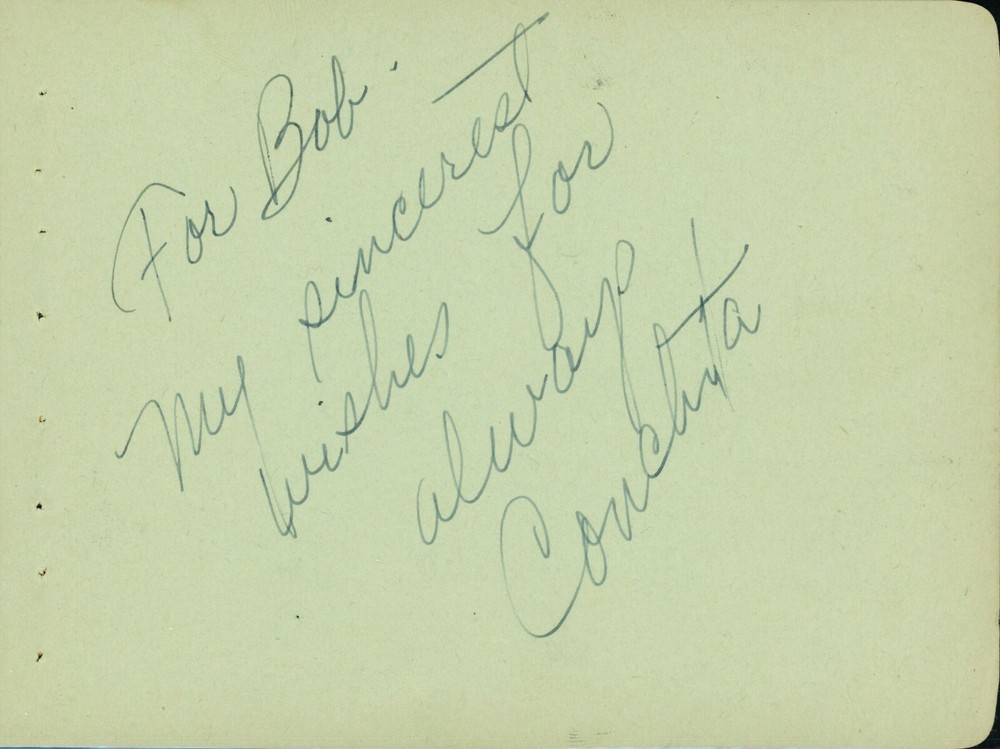 For Bob.
My sincerest
wishes for
always
Conchita